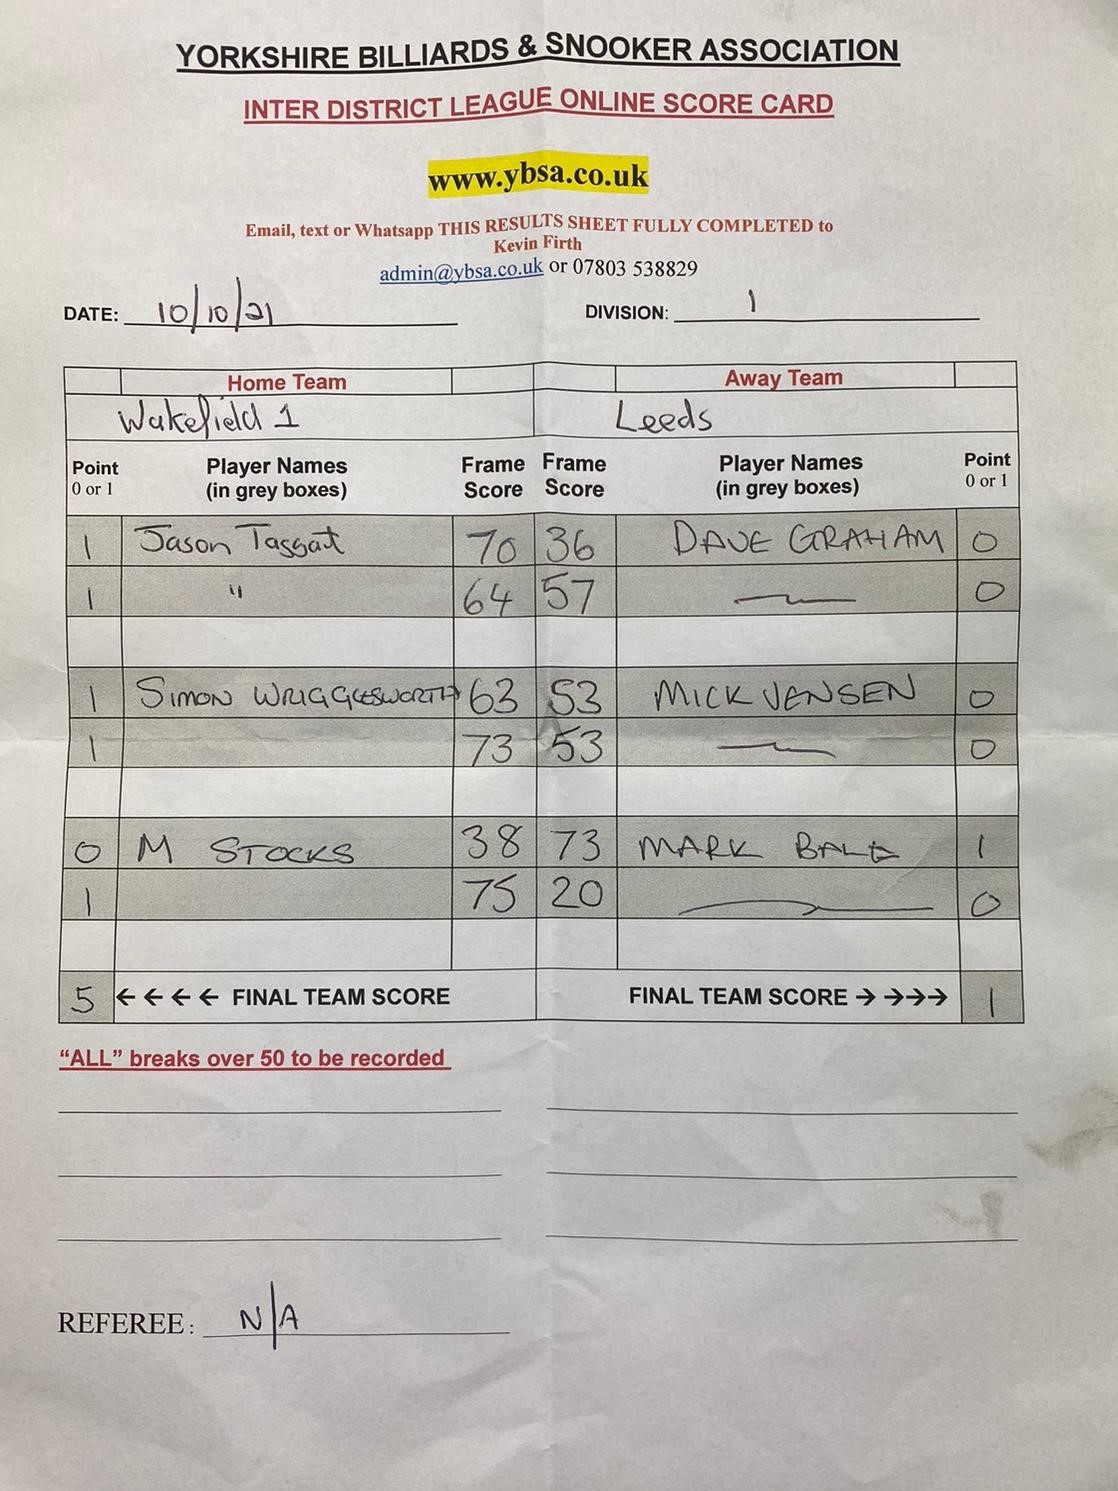 YORKSHIRE BILLIARDS & SNOOKER ASSOCIATION
INTER DISTRICT LEAGUE ONLINE SCORE CARD
www.ybsa.co.uk
Email, text or Whatsapp THIS RESULTS SHEET FULLY COMPLETED to
Kevin Firth
admin@ybsa.co.uk or 07803 538829
DATE: 10/10/21 DIVISION: 1
Home Team Away Team
Wakefield 1 Leeds
Point Player Names Frame Frame Player Names Point
0 or 1 (in grey boxes) Score Score (in grey boxes) 0 or 1
1 Jason Taggart 70 36 DAVE GRAHAM 0
1 " 64 57 0
1 SIMON WRIGGLESWORTH 63 53 MICK JENSEN 0
1 73 53 0
0 M STOCKS 38 73 MARK BALE 1
1 75 20 0
5 ←←←← FINAL TEAM SCORE FINAL TEAM SCORE →→→→ 1
“ALL” breaks over 50 to be recorded
REFEREE: N/A